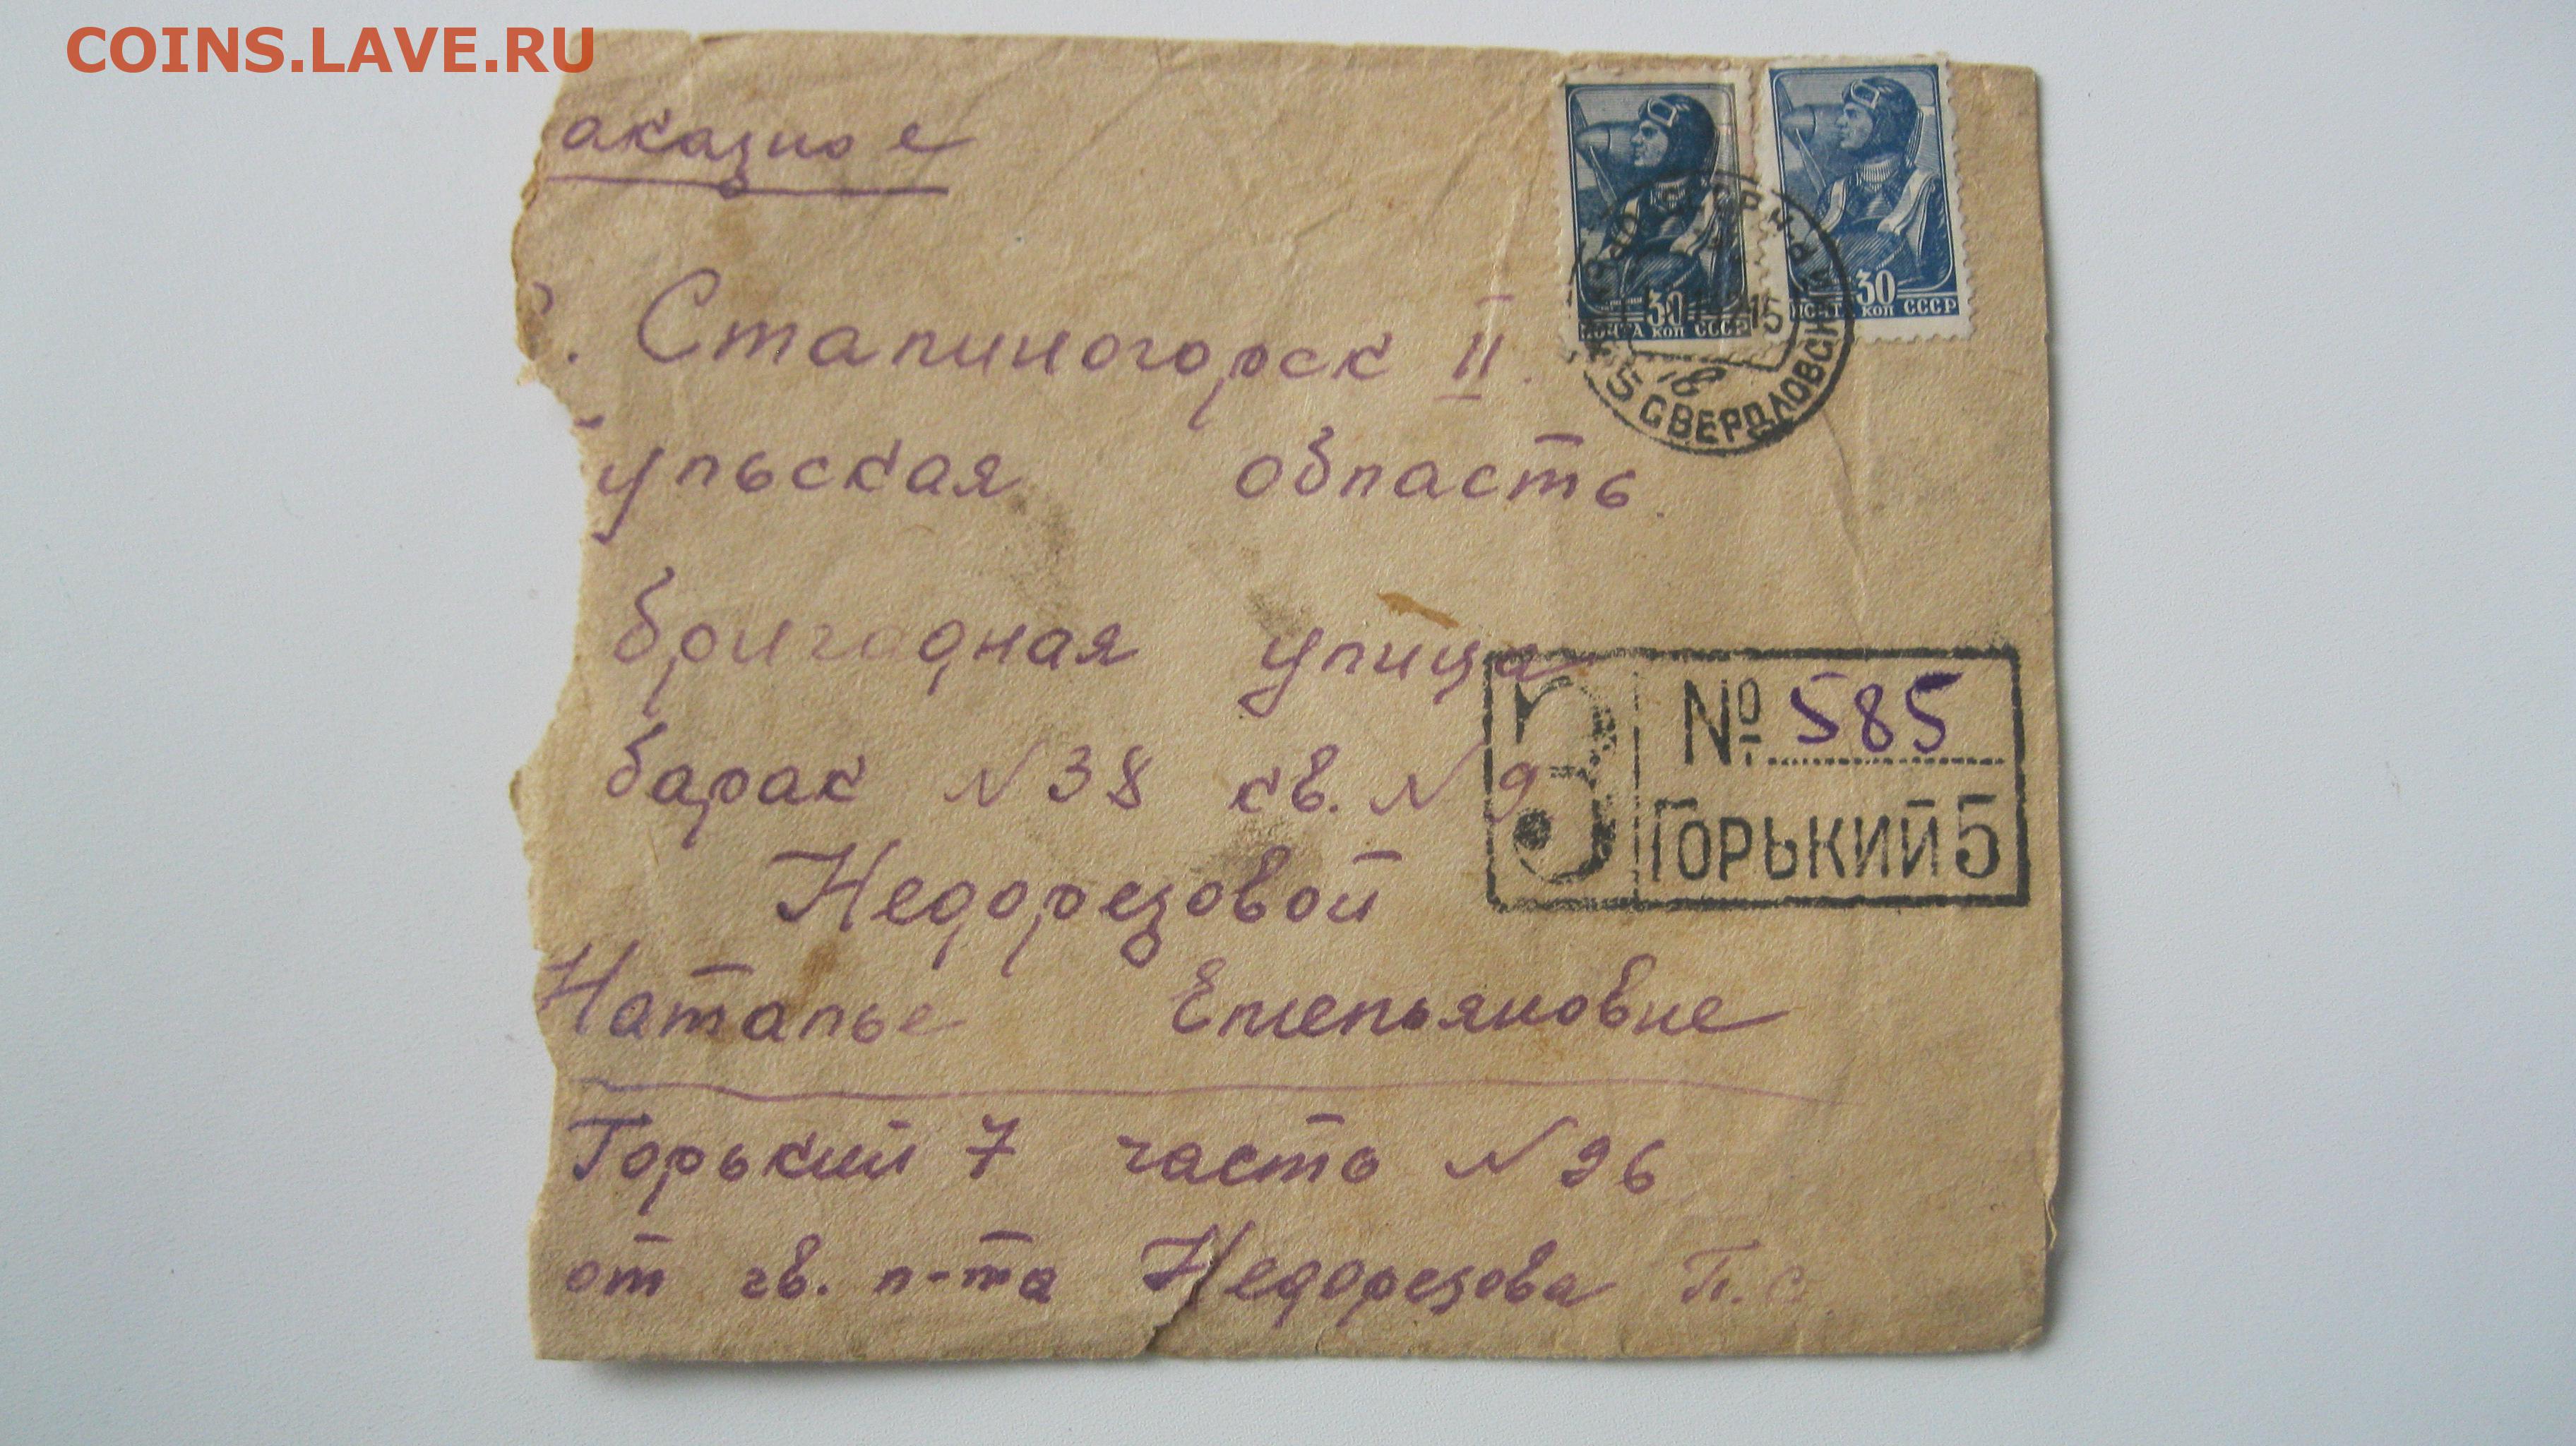 COINS.LAVE.RU
аказное
г. Сталиногорск II.
ульская область.
бригадная улица
барак N 38 кв. N 9
Недорезовой
Наталье Емельяновне
Горький 7 часть N 96
от гв. л-та Недорезова П.С.
30
ПОЧТА КОП СССР
30
ПОЧТА КОП СССР
5 СВЕРДЛОВСК
З № 585
ГОРЬКИЙ 5